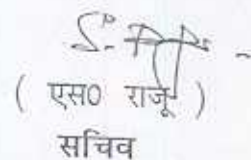 ( एस0 राजू )
सचिव